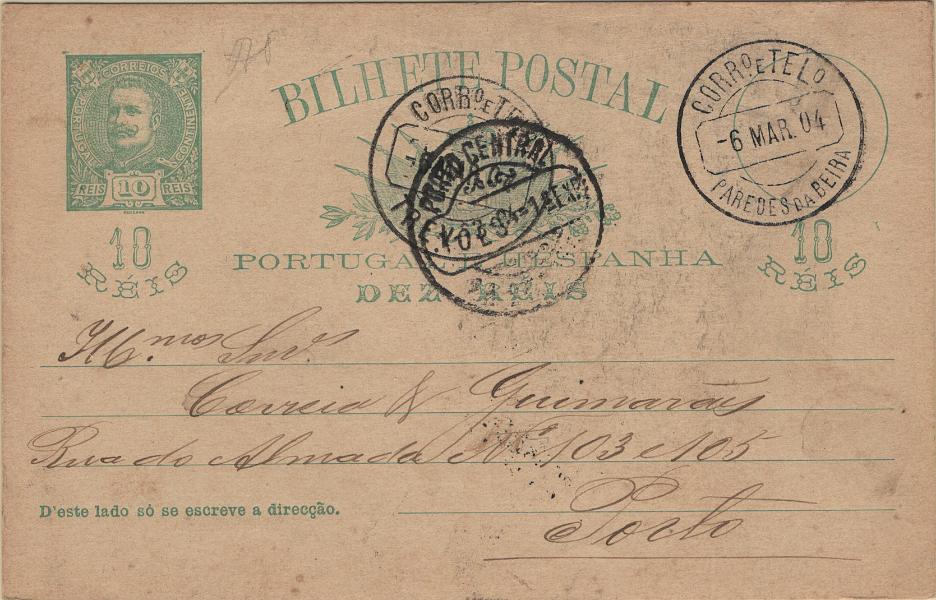 CORREIOS
PORTUGAL
CONTINENTE
REIS 10 REIS
BILHETE POSTAL
10
RÉIS
10
RÉIS
PORTUGAL E HESPANHA
DEZ RÉIS
CORRO E TELO
-6 MAR. 04
PAREDES DA BEIRA
CORRO E TE
PORTO CENTRAL
Ill.mos Snrs.
Correia & Guimarães
Rua do Almada Nº 103 e 105
Porto
D'este lado só se escreve a direcção.